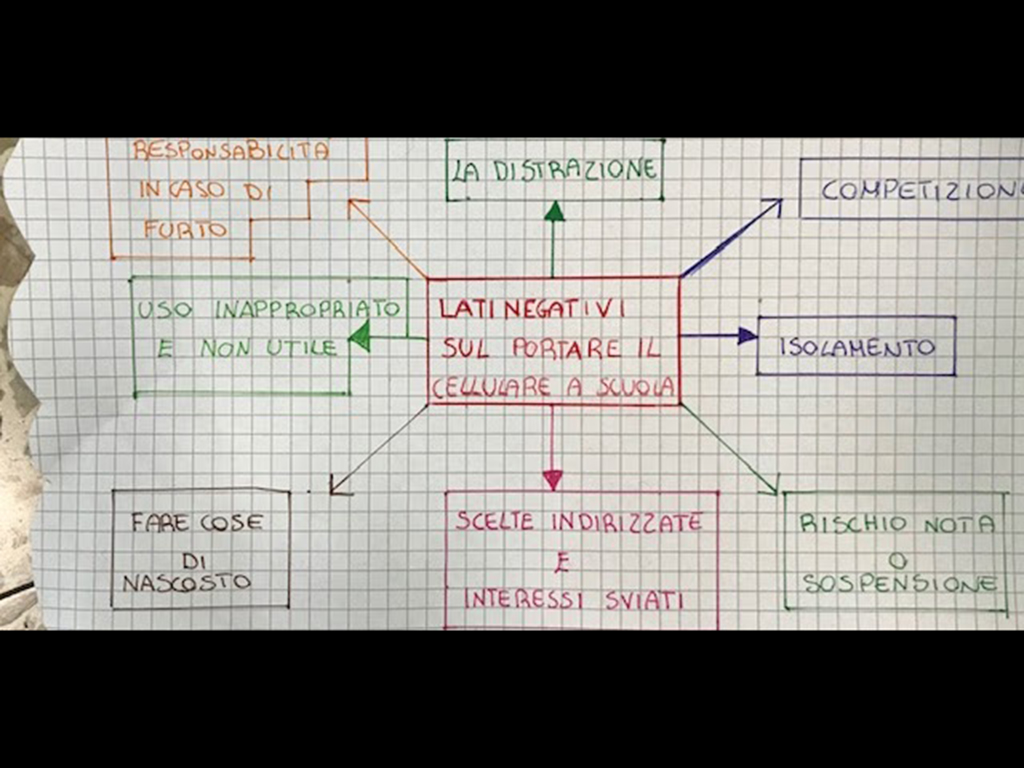 RESPONSABILITÀ
IN CASO DI
FURTO
LA DISTRAZIONE
COMPETIZION
USO INAPPROPRIATO
E NON UTILE
LATI NEGATIVI
SUL PORTARE IL
CELLULARE A SCUOLA
ISOLAMENTO
FARE COSE
DI
NASCOSTO
SCELTE INDIRIZZATE
E
INTERESSI SVIATI
RISCHIO NOTA
O
SOSPENSIONE